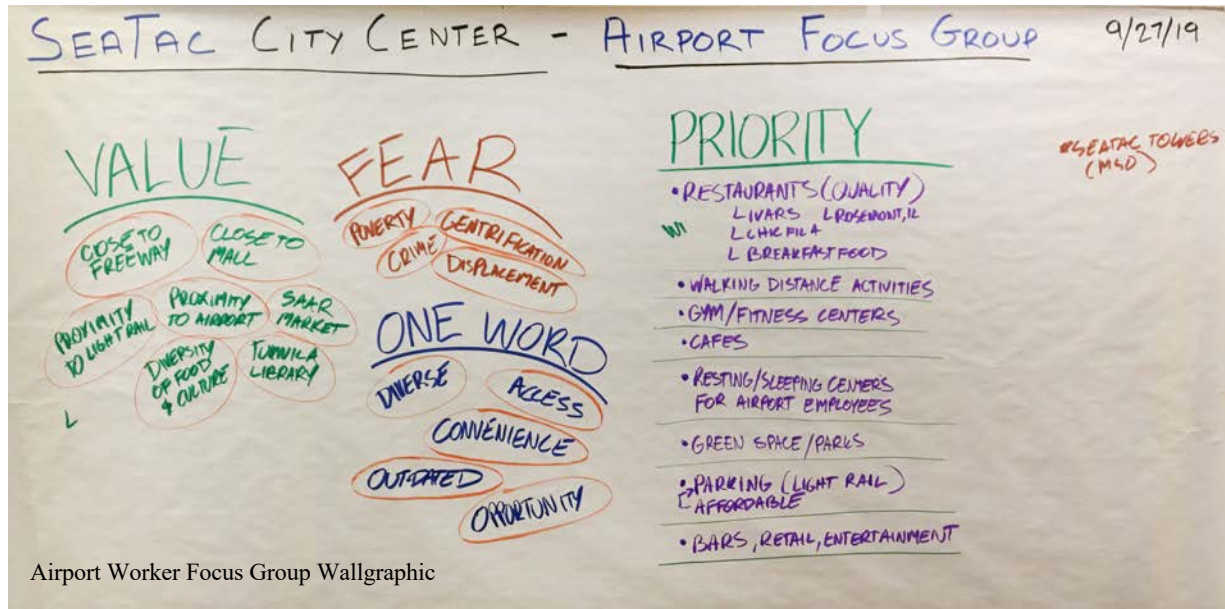 SEATAC CITY CENTER - AIRPORT FOCUS GROUP 9/27/19
VALUE
COSE TO
FREEWAY
CLOSE TO
MALL
PROXIMITY
TO LIGHT RAIL
PROXIMITY
TO AIRPORT
SAAR
MARKET
DIVERSITY
OF FOOD
& CULTURE
TUKWILA
LIBRARY
L
FEAR
POVERTY
CRIME
GENTRIFICATION
DISPLACEMENT
ONE WORD
DIVERSE
ACCESS
CONVENIENCE
OUTDATED
OPPORTUNITY
PRIORITY
• RESTAURANTS (QUALITY)
L IVARS L ROSEMONT, IL
L CHIC FIL A
L BREAKFAST FOOD
• WALKING DISTANCE ACTIVITIES
• GYM/FITNESS CENTERS
• CAFES
• RESTING/SLEEPING CENTERS
FOR AIRPORT EMPLOYEES
• GREEN SPACE/PARKS
• PARKING (LIGHT RAIL)
AFFORDABLE
• BARS, RETAIL, ENTERTAINMENT
SEATAC TOWERS
Airport Worker Focus Group Wallgraphic